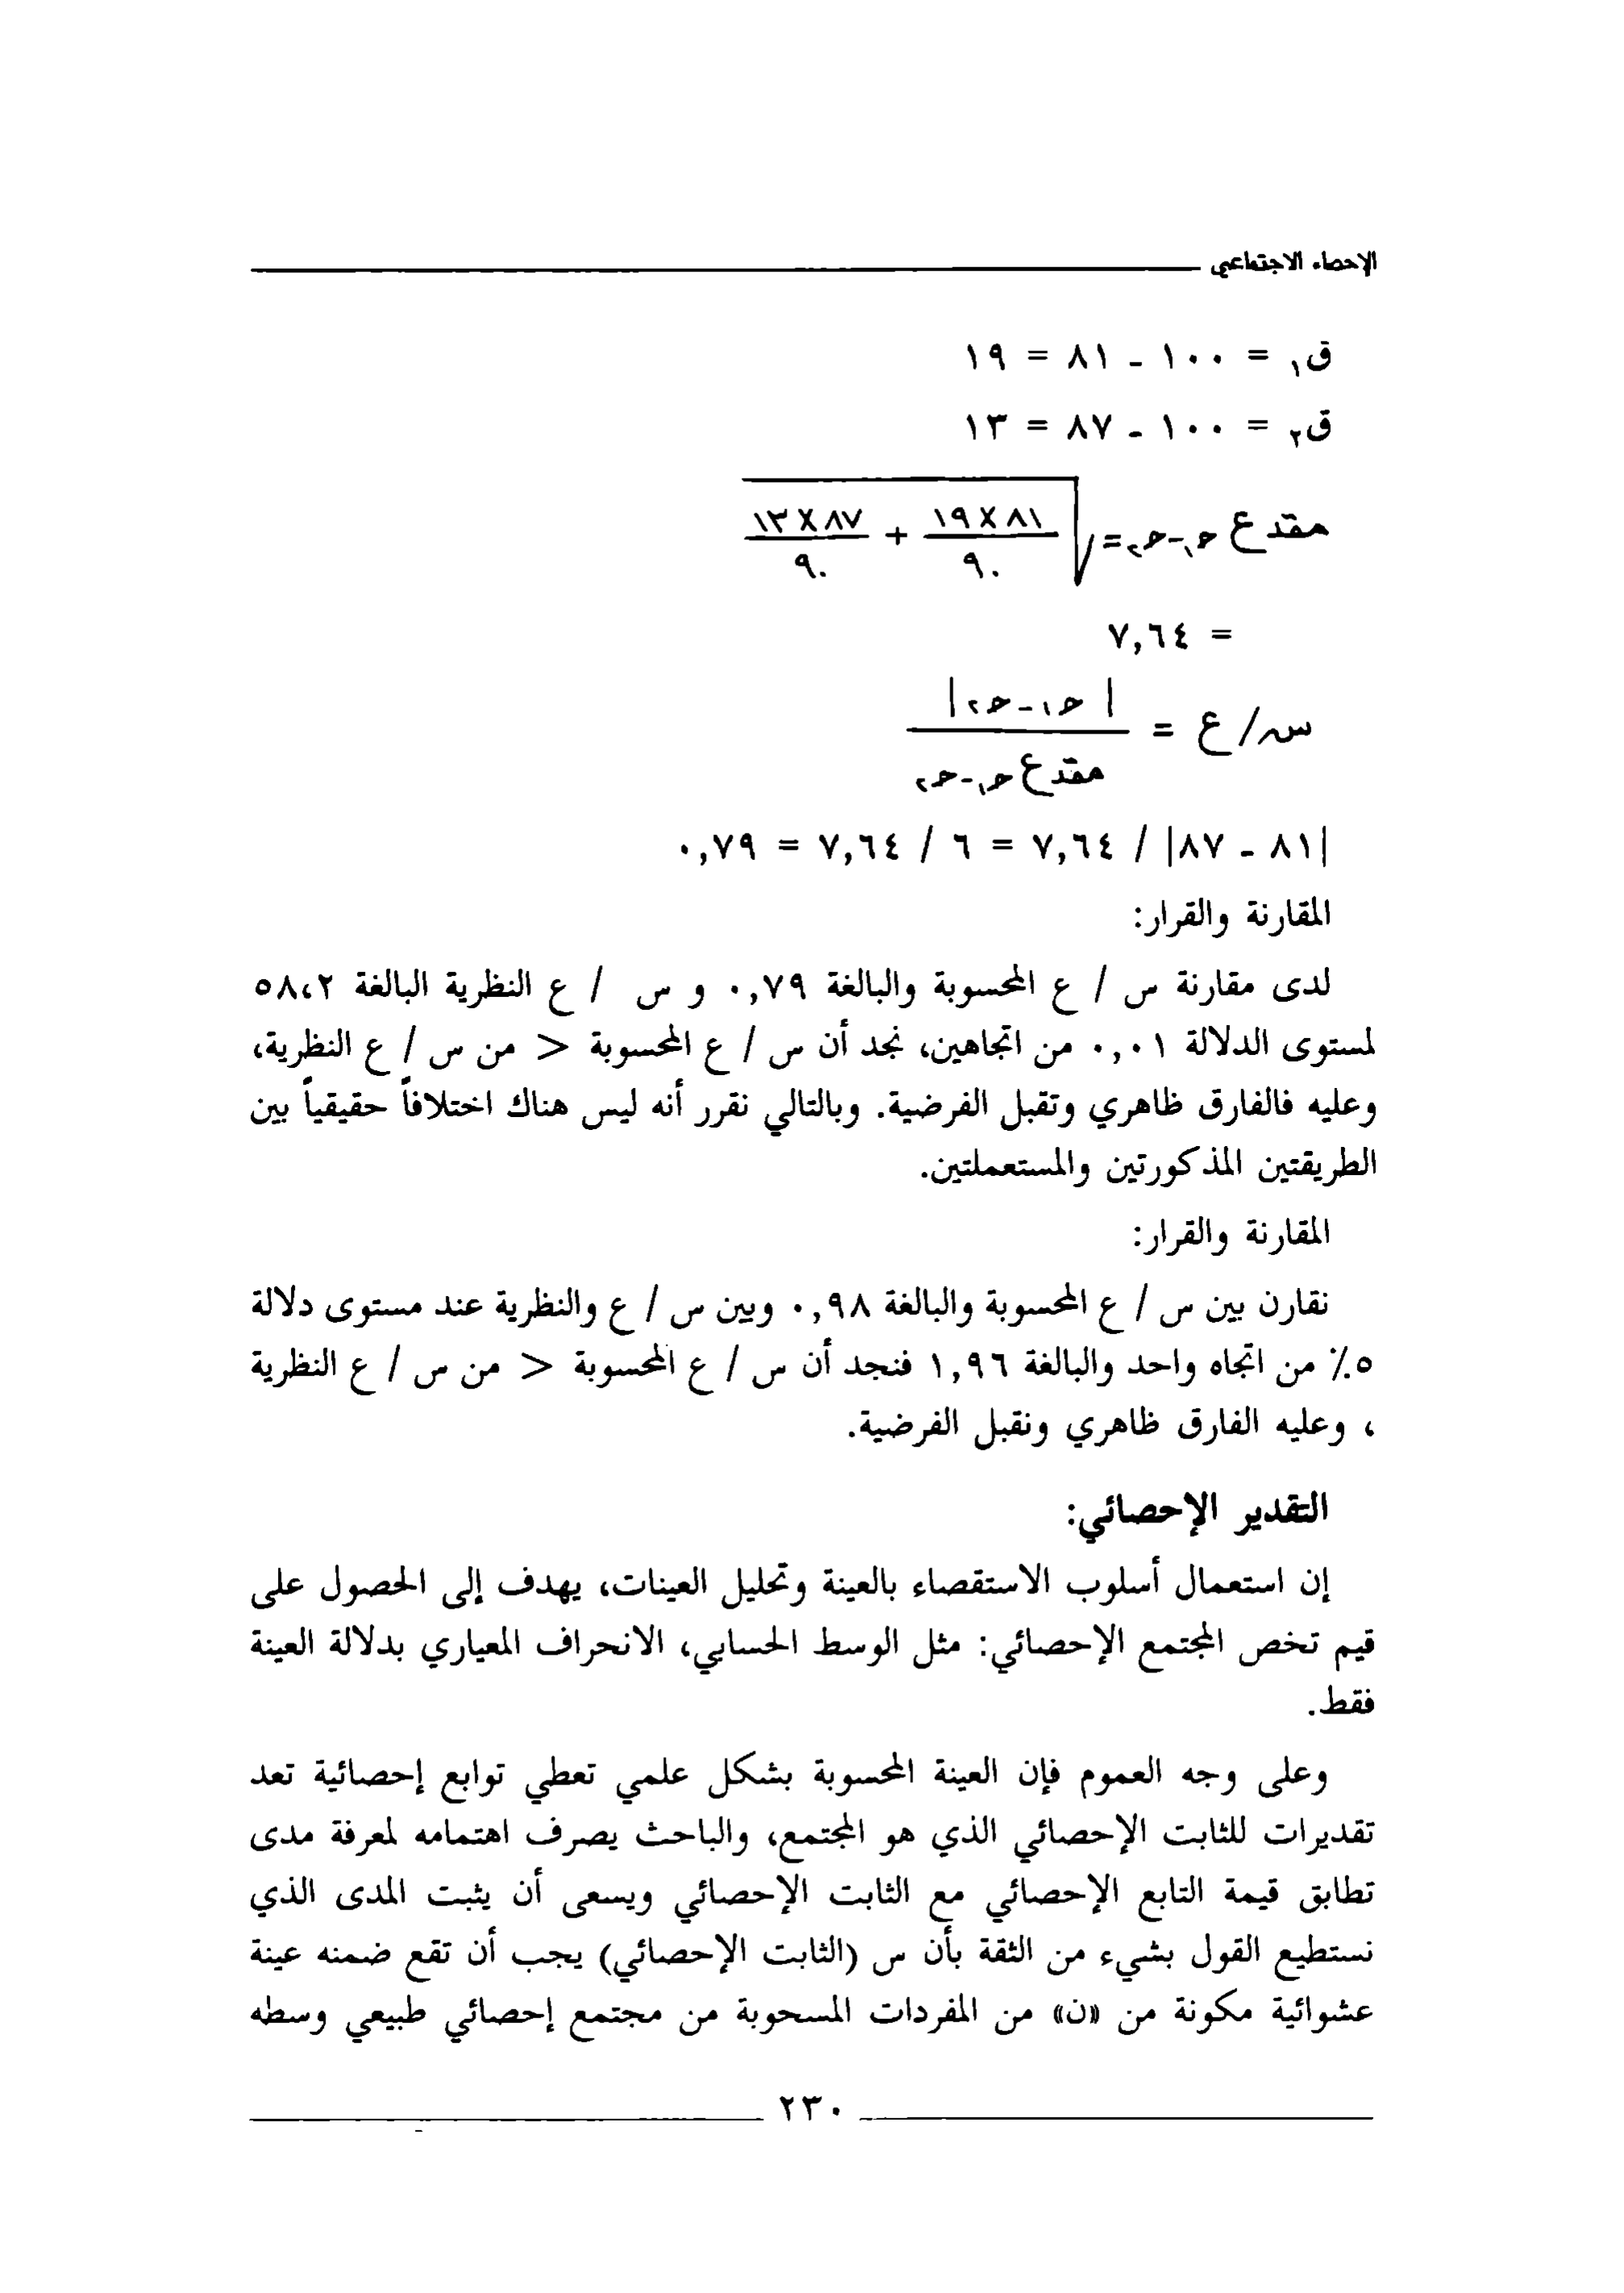 الإحصاء الاجتماعي
ق١ = ١٠٠ - ٨١ = ١٩
ق٢ = ١٠٠ - ٨٧ = ١٣
مقدع ح١-ح٢ = √(٨١ X ١٩ / ٩٠ + ٨٧ X ١٣ / ٩٠)
= ٧,٦٤
س/ع = |ح١-ح٢| / مقدع ح١-ح٢
|٨١ - ٨٧| / ٧,٦٤ = ٦ / ٧,٦٤ = ٠,٧٩
المقارنة والقرار:
لدى مقارنة س / ع المحسوبة والبالغة ٠,٧٩ و س / ع النظرية البالغة ٥٨،٢
لمستوى الدلالة ٠,٠١ من اتجاهين، نجد أن س / ع المحسوبة > من س / ع النظرية،
وعليه فالفارق ظاهري وتقبل الفرضية. وبالتالي نقرر أنه ليس هناك اختلافاً حقيقياً بين
الطريقتين المذكورتين والمستعملتين.
المقارنة والقرار:
نقارن بين س / ع المحسوبة والبالغة ٠,٩٨ وبين س / ع والنظرية عند مستوى دلالة
٥٪ من اتجاه واحد والبالغة ١,٩٦ فنجد أن س / ع المحسوبة > من س / ع النظرية
، وعليه الفارق ظاهري ونقبل الفرضية.
التقدير الإحصائي:
إن استعمال أسلوب الاستقصاء بالعينة وتحليل العينات، يهدف إلى الحصول على
قيم تخص المجتمع الإحصائي: مثل الوسط الحسابي، الانحراف المعياري بدلالة العينة
فقط.
وعلى وجه العموم فإن العينة المحسوبة بشكل علمي تعطي توابع إحصائية تعد
تقديرات للثابت الإحصائي الذي هو المجتمع، والباحث يصرف اهتمامه لمعرفة مدى
تطابق قيمة التابع الإحصائي مع الثابت الإحصائي ويسعى أن يثبت المدى الذي
نستطيع القول بشيء من الثقة بأن س (الثابت الإحصائي) يجب أن تقع ضمنه عينة
عشوائية مكونة من «ن» من المفردات المسحوبة من مجتمع إحصائي طبيعي وسطه
٢٣٠